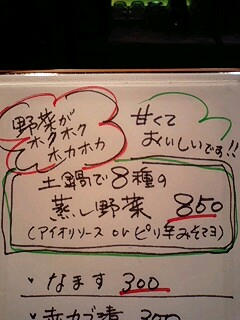 野菜が
ホクホク
ホカホカ
甘くて
おいしいです!!
土鍋で8種の
蒸し野菜 850
(アイオリソース or ピリ辛みそでヨ)
・なます 300
・赤カブ漬 300